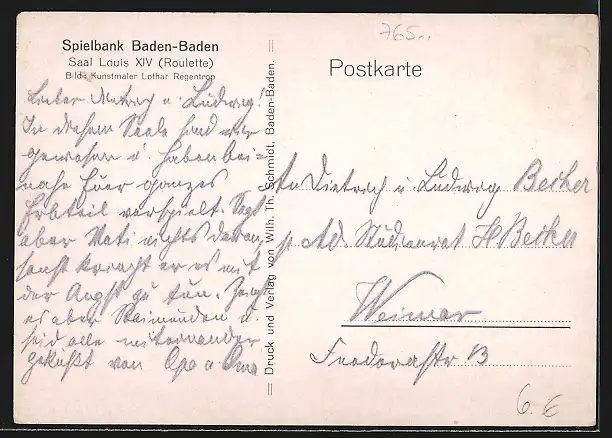 765..
Spielbank Baden-Baden
Saal Louis XIV (Roulette)
Bild: Kunstmaler Lothar Regentrop
Postkarte
Lieber Dietrich u. Ludwig!
In diesem Saale sind wir
gewesen u. haben bei=
nahe Euer ganzes
Erbteil verspielt. Sagt
aber Vati nichts davon,
sonst kriegt er es mit
der Angst zu tun. Zeigt
es aber u.
seid alle miteinander
geküßt von Opa u Oma
= Druck und Verlag von Wilh. Th. Schmidt, Baden-Baden. =
An Dietrich u. Ludwig Becker
p. Ad. Studienrat H Becker
Weimar
Feodorastr 13
6. E